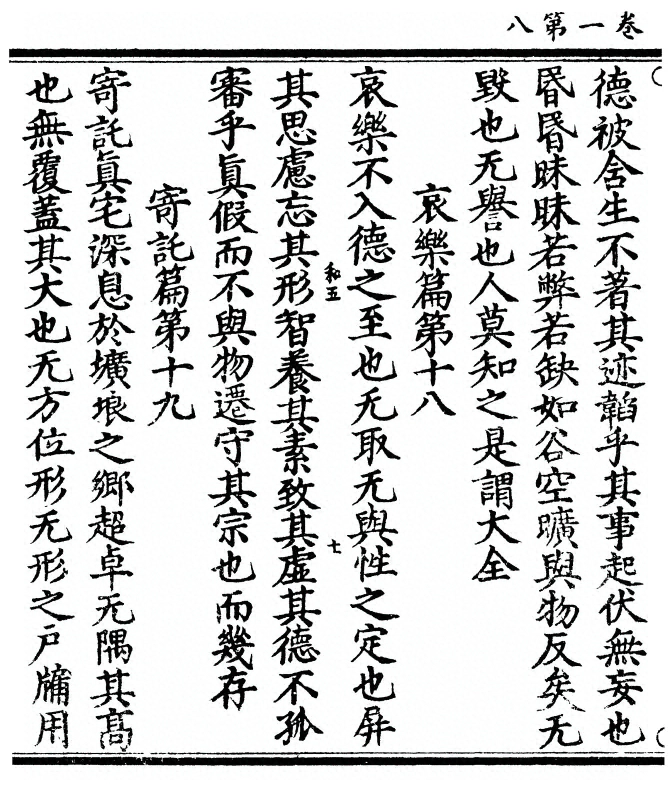 卷一第八
德被含生不著其迹韜乎其事起伏無妄也
昬昬昧昧若弊若缺如谷空曠與物反矣无
毀也无譽也人莫知之是謂大全
哀樂篇第十八
哀樂不入德之至也无取无與性之定也屏
和五
七
其思慮忘其形智養其素致其虛其德不孤
審乎真假而不與物遷守其宗也而幾存
寄託篇第十九
寄託真宅深息於壙埌之鄉超卓无隅其高
也無覆蓋其大也无方位形无形之戶牖用